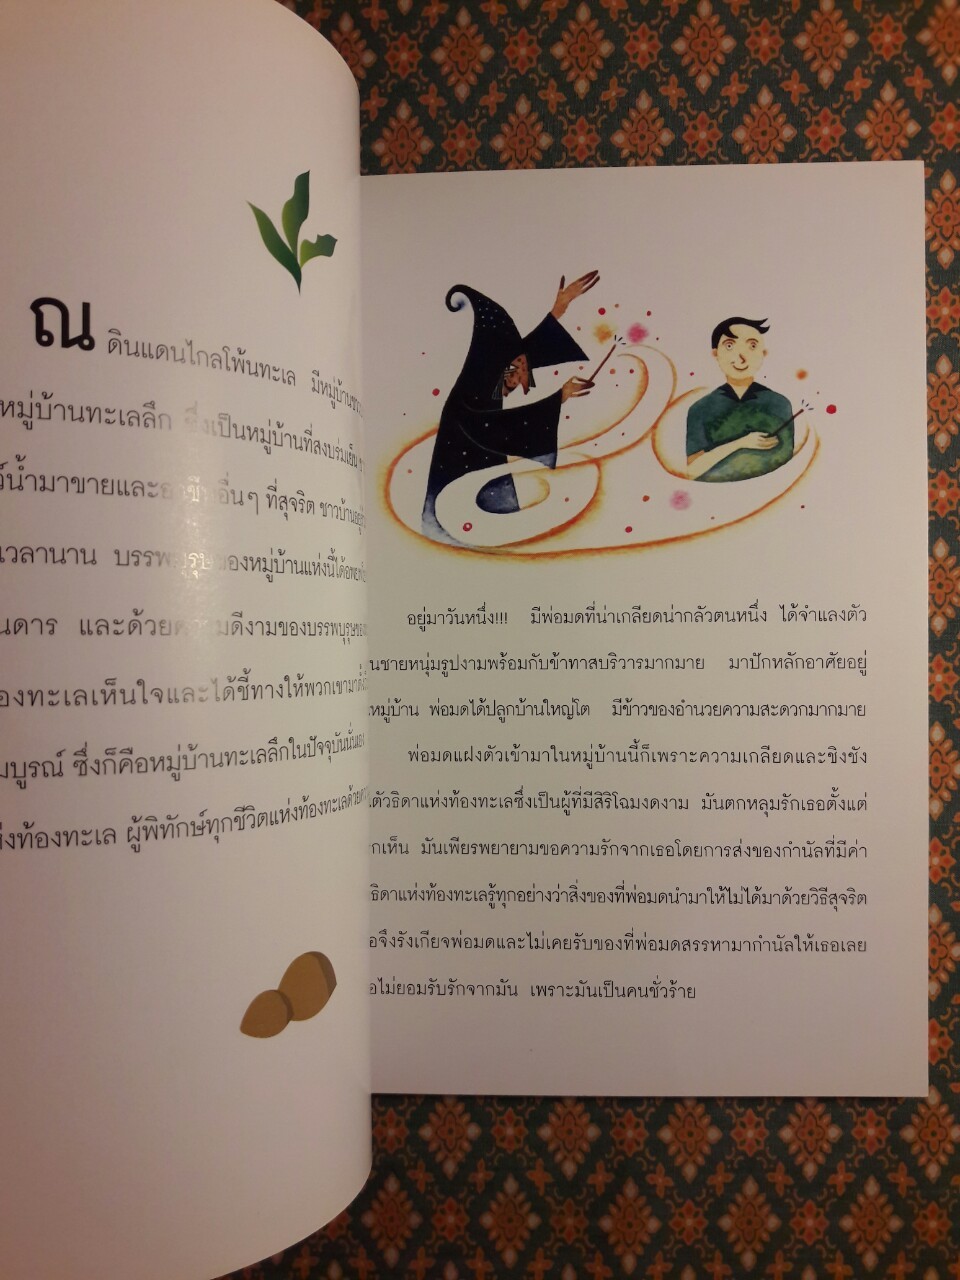 ณ ดินแดนไกลโพ้นทะเล มีหมู่บ้าน
หมู่บ้านทะเลลึก ซึ่งเป็นหมู่บ้านที่สงบร่มเย็น
น้ำมาขายและอาชีพอื่นๆ ที่สุจริต ชาวบ้าน
เวลานาน บรรพบุรุษของหมู่บ้านแห่งนี้ได้
และด้วยความดีงามของบรรพบุรุษของ
ท้องทะเลเห็นใจและได้ชี้ทางให้พวกเขามา
ซึ่งก็คือหมู่บ้านทะเลลึกในปัจจุบันนั่นเอง
ท้องทะเล ผู้พิทักษ์ทุกชีวิตแห่งท้องทะเลด้วย
อยู่มาวันหนึ่ง!!! มีพ่อมดที่น่าเกลียดน่ากลัวตนหนึ่ง ได้จำแลงตัว
นชายหนุ่มรูปงามพร้อมกับข้าทาสบริวารมากมาย มาปักหลักอาศัยอยู่
หมู่บ้าน พ่อมดได้ปลูกบ้านใหญ่โต มีข้าวของอำนวยความสะดวกมากมาย
พ่อมดแฝงตัวเข้ามาในหมู่บ้านนี้ก็เพราะความเกลียดและชิงชัง
ตัวธิดาแห่งท้องทะเลซึ่งเป็นผู้ที่มีสิริโฉมงดงาม มันตกหลุมรักเธอตั้งแต่
กเห็น มันเพียรพยายามขอความรักจากเธอโดยการส่งของกำนัลที่มีค่า
ธิดาแห่งท้องทะเลรู้ทุกอย่างว่าสิ่งของที่พ่อมดนำมาให้ไม่ได้มาด้วยวิธีสุจริต
อจึงรังเกียจพ่อมดและไม่เคยรับของที่พ่อมดสรรหามากำนัลให้เธอเลย
อไม่ยอมรับรักจากมัน เพราะมันเป็นคนชั่วร้าย